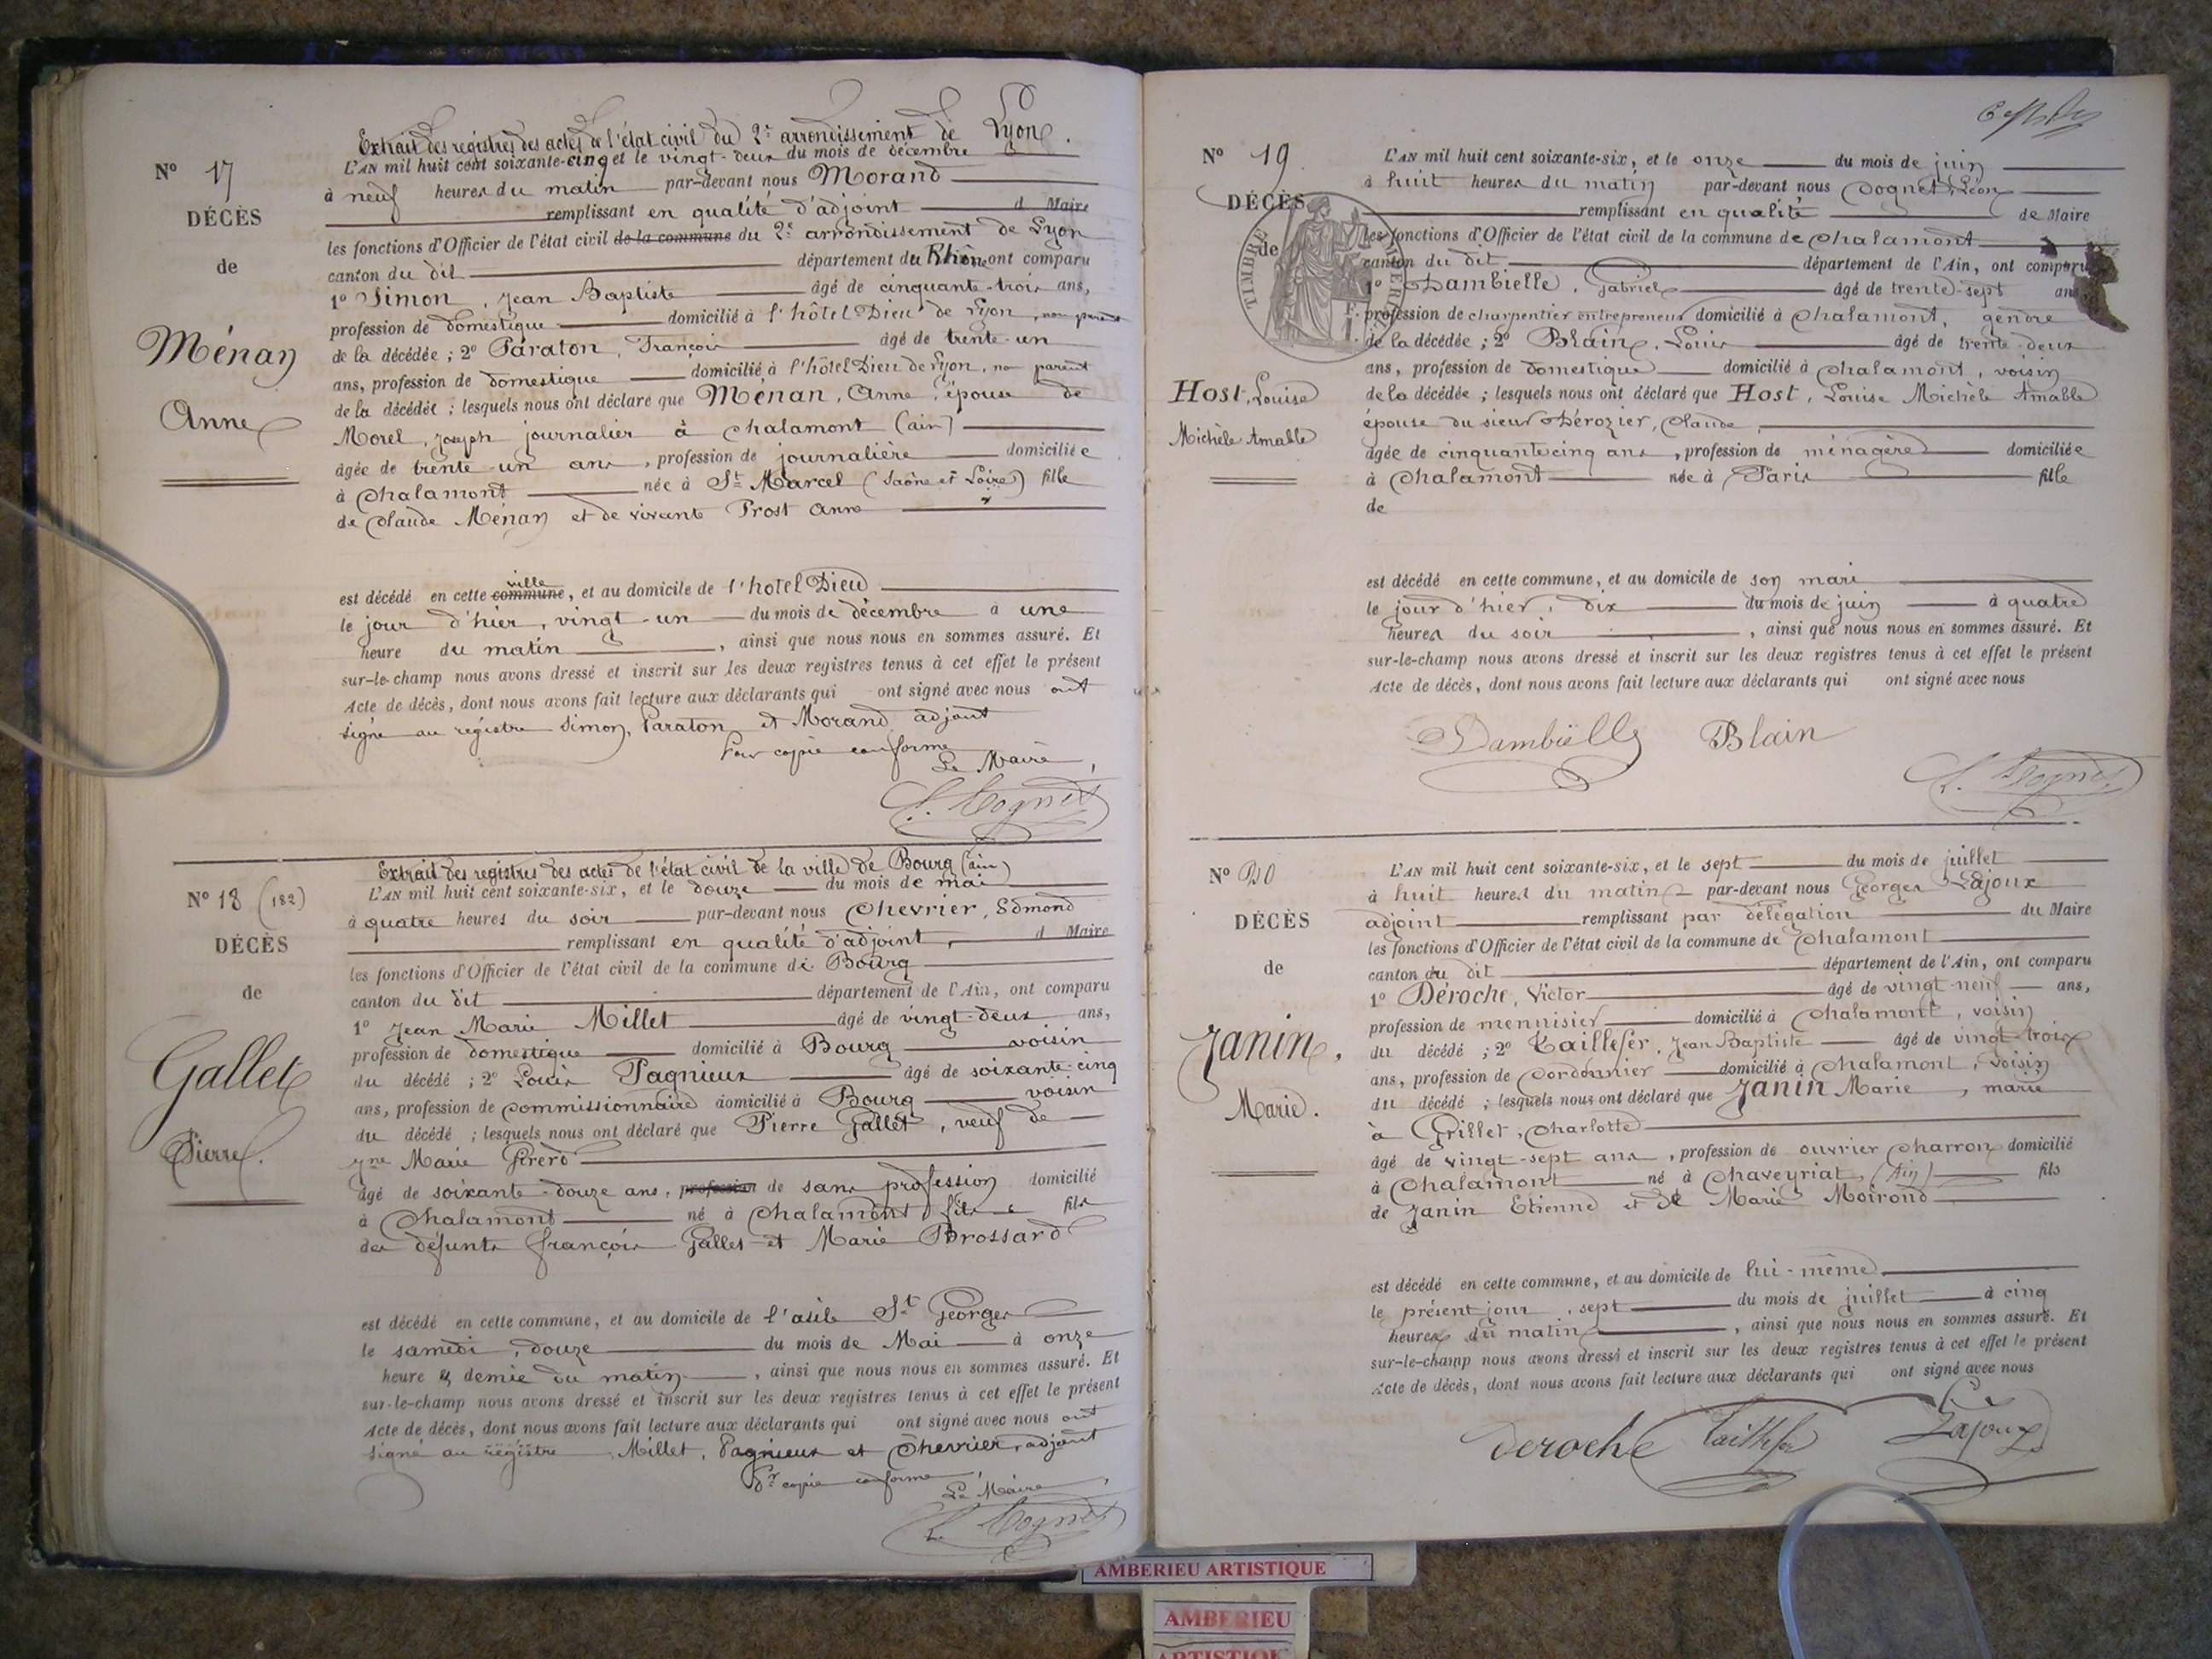 Extrait des registres des actes de l'état civil du 2e arrondissement de Lyon.
No 17
L'AN mil huit cent soixante-cinq et le vingt-deux du mois de décembre
à neuf heures du matin par-devant nous Morand
DÉCÈS
remplissant en qualité d'adjoint d Maire
les fonctions d'Officier de l'état civil de la commune du 2e arrondissement de Lyon
de
canton du dit département du Rhône ont comparu
1o Simon, Jean Baptiste âgé de cinquante-trois ans,
profession de domestique domicilié à l'hôtel Dieu de Lyon, non parent
Ménan
de la décédée ; 2o Paraton, François âgé de trente-un
ans, profession de domestique domicilié à l'hôtel Dieu de Lyon, non parent
Anne
de la décédée ; lesquels nous ont déclaré que Ménan, Anne, épouse de
Morel, Joseph journalier à Chalamont (ain)
âgée de trente-un ans, profession de journalière domiciliée
à Chalamont née à St Marcel (Saône et Loire) fille
de Claude Ménan et de vivante Prost Anne
est décédé en cette commune ville, et au domicile de l'hotel Dieu
le jour d'hier, vingt-un du mois de décembre à une
heure du matin, ainsi que nous nous en sommes assuré. Et
sur-le-champ nous avons dressé et inscrit sur les deux registres tenus à cet effet le présent
Acte de décès, dont nous avons fait lecture aux déclarants qui ont signé avec nous ont
signé au régistre Simon, Paraton et Morand adjoint
Pour copie conforme
Le Maire,
L. Cognet
Extrait des registres des actes de l'état civil de la ville de Bourg (ain)
No 18 (182)
L'AN mil huit cent soixante-six, et le douze du mois de mai
à quatre heures du soir par-devant nous Chevrier, Edmond
DÉCÈS
remplissant en qualité d'adjoint, d Maire
les fonctions d'Officier de l'état civil de la commune de Bourg
de
canton du dit département de l'Ain, ont comparu
1o Jean Marie Millet âgé de vingt-deux ans,
profession de domestique domicilié à Bourg voisin
Gallet
du décédé ; 2o Louis Pagnieux âgé de soixante-cinq
ans, profession de commissionnaire domicilié à Bourg voisin
Pierre.
du décédé ; lesquels nous ont déclaré que Pierre Gallet, veuf de
Marie
âgé de soixante-douze ans, profession de sans profession domicilié
à Chalamont né à Chalamont fils
des défunts françois Gallet et Marie Brossard
est décédé en cette commune, et au domicile de l'asile St Georges
le samedi, douze du mois de Mai à onze
heure & demie du matin, ainsi que nous nous en sommes assuré. Et
sur-le-champ nous avons dressé et inscrit sur les deux registres tenus à cet effet le présent
Acte de décès, dont nous avons fait lecture aux déclarants qui ont signé avec nous ont
signé au régistre Millet, Pagnieux et Chevrier, adjoint
Pr copie conforme
Le Maire
L. Cognet
No 19
L'AN mil huit cent soixante-six, et le onze du mois de juin
à huit heures du matin par-devant nous Cognet Léon
DÉCÈS
remplissant en qualité de Maire
les fonctions d'Officier de l'état civil de la commune de Chalamont
de
canton du dit département de l'Ain, ont comparu
TIMBRE
1o Dambielle, Gabriel âgé de trente-sept ans
profession de charpentier entrepreneur domicilié à Chalamont, gendre
de la décédée ; 2o Blain, Louis âgé de trente-deux
ans, profession de domestique domicilié à Chalamont, voisin
Host, Louise
de la décédée ; lesquels nous ont déclaré que Host, Louise Michèle Amable
Michèle Amable
épouse du sieur Dérozier, Claude,
âgée de cinquante cinq ans, profession de ménagère domiciliée
à Chalamont née à Paris fille
de
est décédé en cette commune, et au domicile de son mari
le jour d'hier, dix du mois de juin à quatre
heures du soir, ainsi que nous nous en sommes assuré. Et
sur-le-champ nous avons dressé et inscrit sur les deux registres tenus à cet effet le présent
Acte de décès, dont nous avons fait lecture aux déclarants qui ont signé avec nous
Dambielle Blain
L. Cognet
No 20
L'AN mil huit cent soixante-six, et le sept du mois de juillet
à huit heures du matin par-devant nous Georges Lajoux
DÉCÈS
adjoint remplissant par délégation du Maire
les fonctions d'Officier de l'état civil de la commune de Chalamont
de
canton du dit département de l'Ain, ont comparu
1o Déroche, Victor âgé de vingt-neuf ans,
profession de menuisier domicilié à Chalamont, voisin
Janin,
du décédé ; 2o Taillefer, Jean Baptiste âgé de vingt-trois
ans, profession de Cordonnier domicilié à Chalamont, voisin
Marie.
du décédé ; lesquels nous ont déclaré que Janin Marie, marié
à Grillet, Charlotte
âgé de vingt-sept ans, profession de ouvrier charron domicilié
à Chalamont né à Chaveyriat, (Ain) fils
de Janin Etienne et de Marie Moirond
est décédé en cette commune, et au domicile de lui-même
le présent jour, sept du mois de juillet à cinq
heures du matin, ainsi que nous nous en sommes assuré. Et
sur-le-champ nous avons dressé et inscrit sur les deux registres tenus à cet effet le présent
Acte de décès, dont nous avons fait lecture aux déclarants qui ont signé avec nous
deroche taillefer Lajoux
AMBERIEU ARTISTIQUE
AMBERIEU
ARTISTIQUE